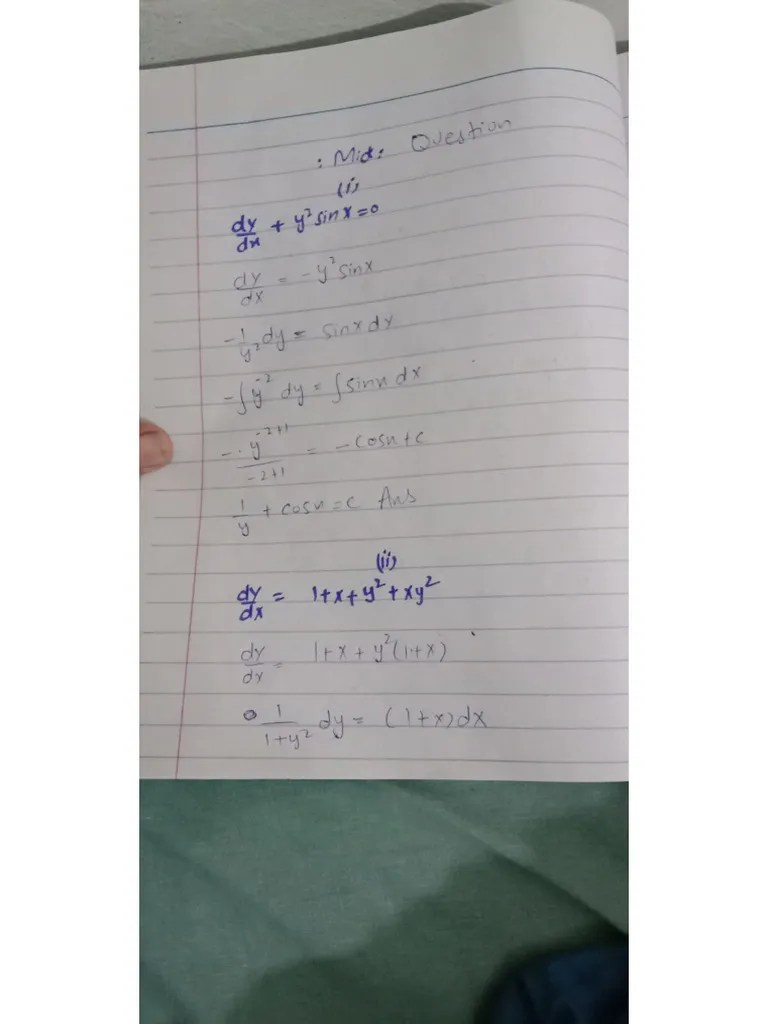 : Mid: Question
(i)
dy/dx + y² sinx = 0
dy/dx = - y² sinx
- 1/y² dy = sinx dx
- ∫ y⁻² dy = ∫ sinx dx
- · y⁻²⁺¹/-2+1 = - cosx + c
1/y + cosx = c Ans
(ii)
dy/dx = 1+x+y²+xy²
dy/dx = 1+x+y²(1+x)
1/1+y² dy = (1+x)dx